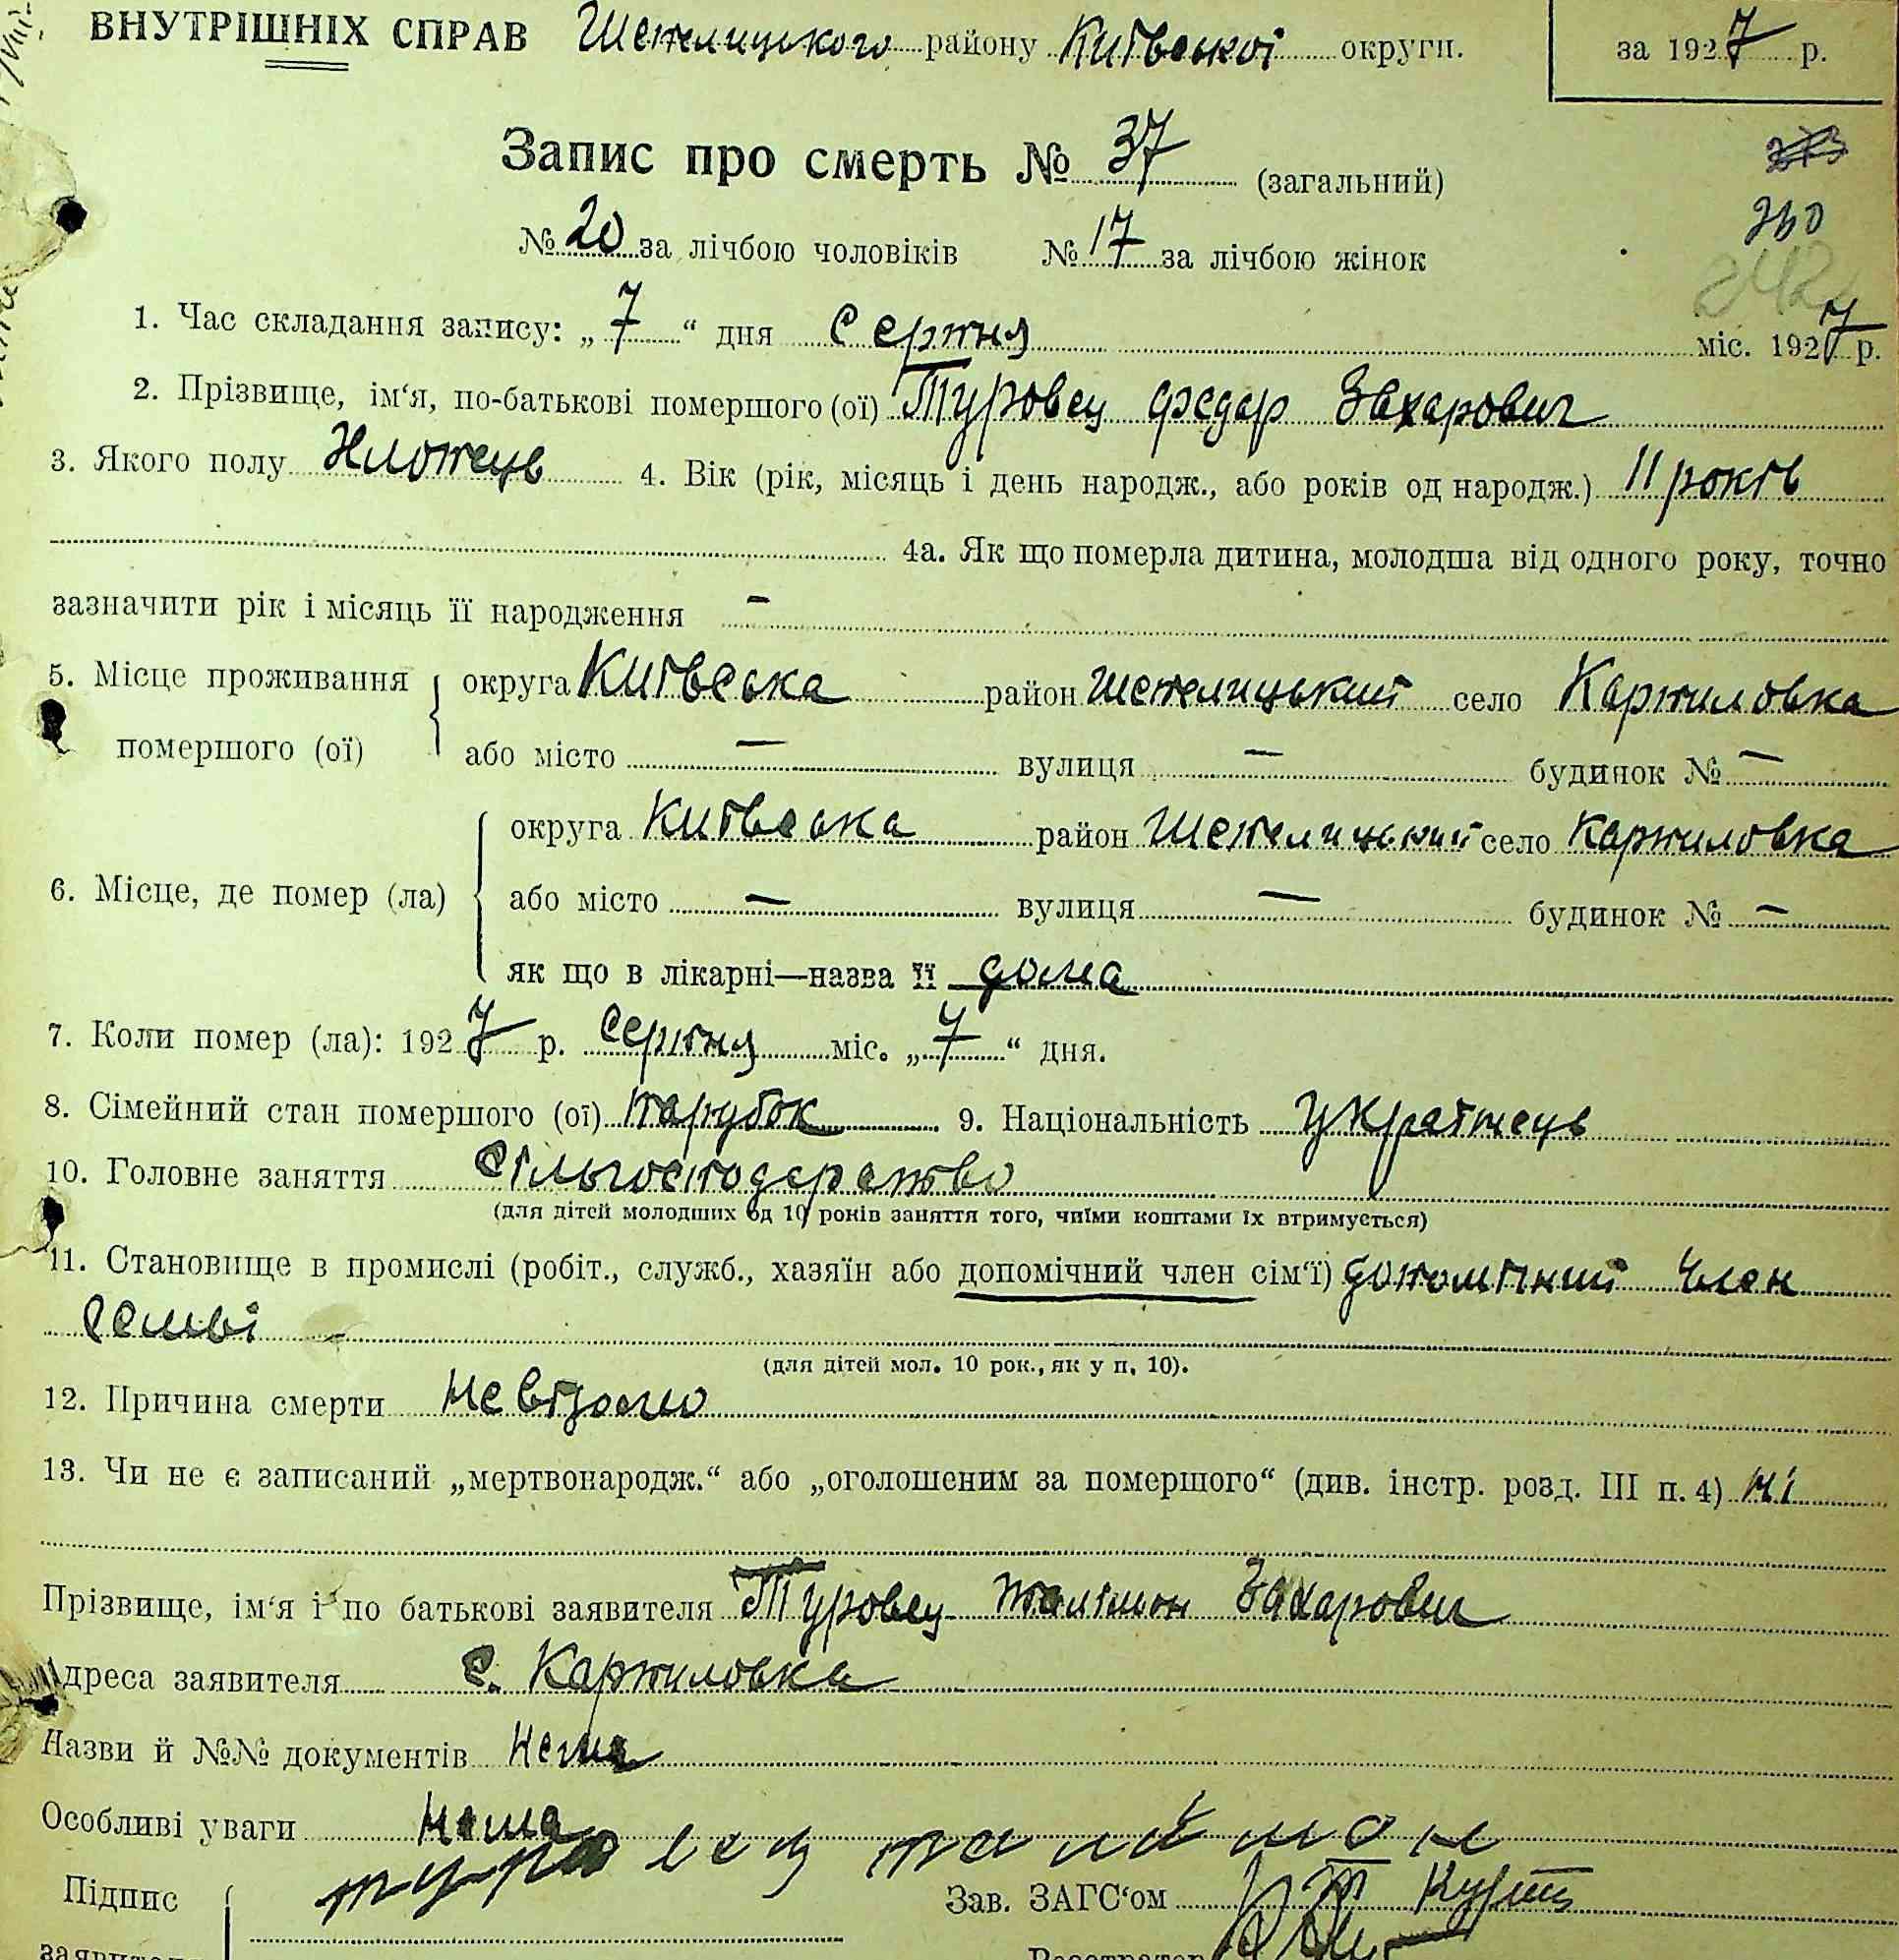 ВНУТРІШНІХ СПРАВ Шепелицького району Київської округи. за 1927 р.
Запис про смерть № 37 (загальний)
№ 20 за лічбою чоловіків № 17 за лічбою жінок
1. Час складання запису: „7“ дня Серпня міс. 1927 р.
2. Прізвище, ім‘я, по-батькові помершого (ої) Туровец Федар Захарович
3. Якого полу Хлопець 4. Вік (рік, місяць і день народж., або років од народж.) 11 років
4а. Як що померла дитина, молодша від одного року, точно
зазначити рік і місяць її народження –
5. Місце проживання помершого (ої) округа Київська район Шепелицький село Карпиловка
або місто — вулиця — будинок № —
6. Місце, де помер (ла) округа Київська район Шепелицький село Карпиловка
або місто — вулиця — будинок № —
як що в лікарні—назва її дома
7. Коли помер (ла): 1927 р. Серпня міс. „7“ дня.
8. Сімейний стан помершого (ої) парубок 9. Національність Українець
10. Головне заняття
(для дітей молодших од 10 років заняття того, чиїми коштами їх втримується)
11. Становище в промислі (робіт., служб., хазяїн або допомічний член сім‘ї) допомічний член
семьі
(для дітей мол. 10 рок., як у п. 10).
12. Причина смерти Невідомо
13. Чи не є записаний „мертвонародж.“ або „оголошеним за помершого“ (див. інстр. розд. III п. 4) Ні
Прізвище, ім‘я і по батькові заявителя Туровец Захарович
Адреса заявителя С. Карпиловка
Назви й №№ документів Нема
Особливі уваги Нема
Підпис Зав. ЗАГС‘ом